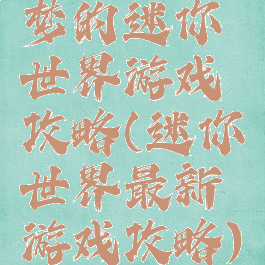 梦的迷你
世界游戏
攻略(迷你
世界最新
游戏攻略)